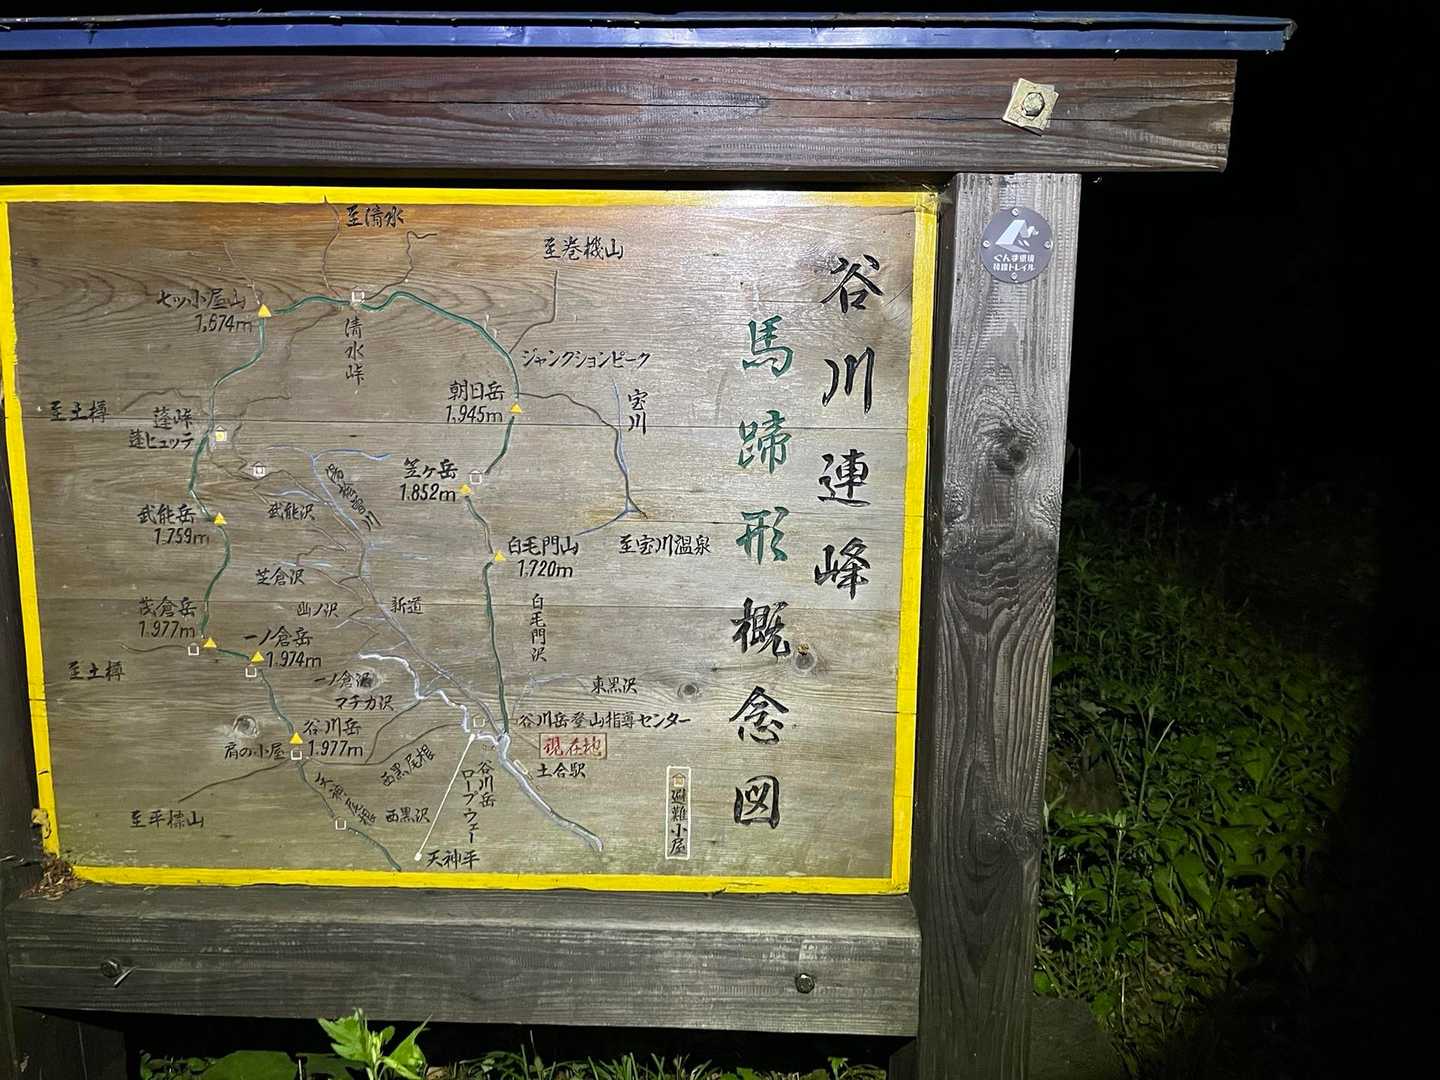 谷川連峰
馬蹄形概念図
至清水
至巻機山
七ッ小屋山
1,674m
清水峠
ジャンクションピーク
朝日岳
1,945m
宝川
至土樽
蓬峠
蓬ヒュッテ
笠ヶ岳
1.852m
武能沢
武能岳
1.759m
白毛門山
1.720m
至宝川温泉
芝倉沢
茂倉岳
1.977m
幽ノ沢
新道
白毛門沢
一ノ倉岳
1.974m
至土樽
一ノ倉沢
マチガ沢
東黒沢
谷川岳登山指導センター
現在地
土合駅
谷川岳
1.977m
肩の小屋
西黒尾根
西黒沢
谷川岳
ロープウェー
天神尾根
至平標山
天神平
避難小屋
ぐんま県境
稜線トレイル